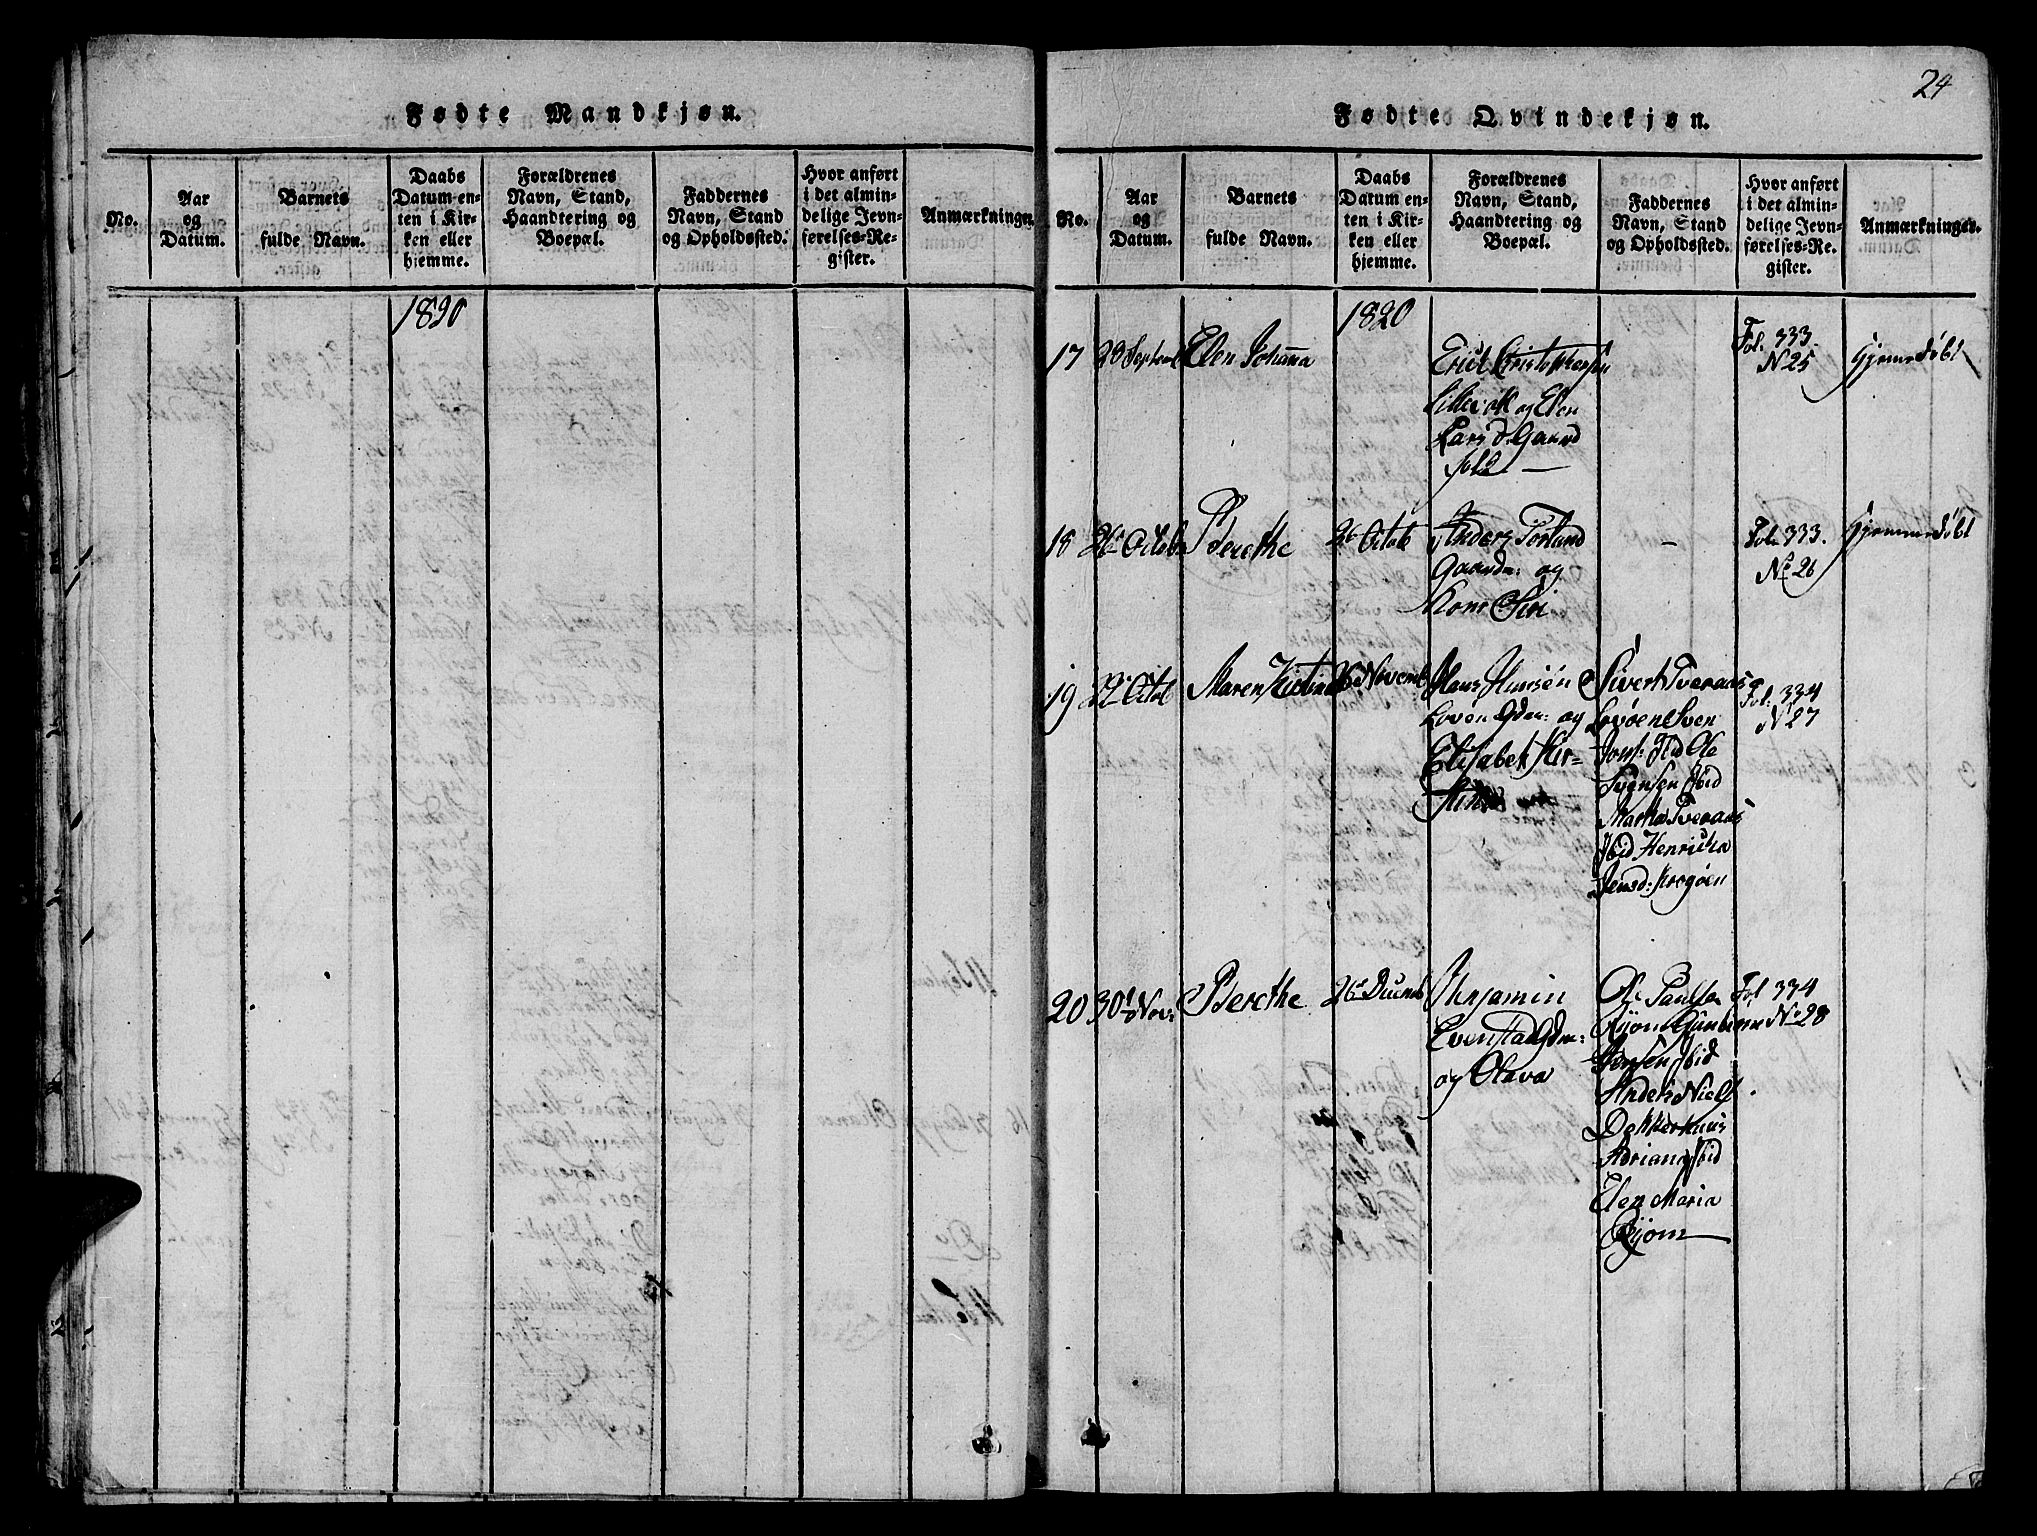 24
Fødte Mandkjøn.
No.
Aar
og
Datum.
Barnets
fulde Navn.
Daabs
Datum en-
ten i Kir-
ken eller
hjemme.
Forældrenes
Navn, Stand,
Haandtering og
Boepæl.
Faddernes
Navn, Stand
og Opholdssted.
Hvor anført
i det almin-
delige Jevn-
førelses-Re-
gister.
Anmærkninger.
1820
Fødte Qvindekjøn.
No.
Aar
og
Datum.
Barnets
fulde Navn.
Daabs
Datum en-
ten i Kir-
ken eller
hjemme.
Forældrenes
Navn, Stand,
Haandtering og
Boepæl.
Faddernes
Navn, Stand
og Opholdssted.
Hvor anført
i det almin-
delige Jevn-
førelses-Re-
gister.
Anmærkninger.
1820
17
Elen Johanna
Christophersen
og Elen
Lars d. Gaard
Fol: 333.
N 25
Gjemmedøbt
18
26 Octob
Berethe
26 Octob
Anders Torland
Gaardm: og
Kone Siri
Fol: 333.
No 26
Gjemmedøbt
19
Octob
Maren
26 Novemb
Hans
og
Elisabet Kir=
Sivert Tveraas
Sven
Ole
Svensen Ibid
Martha Tveraas
Ibid Henricha
Jensd:
Fol: 334
N 27
20
30 Nov:
Berethe
26 Decemb
Benjamin
Evenstad Gdm:
og Olava
Ole Paulsen
Ibid
Anders Niels
Ibid
Elen Maria
Fol 334
No 28